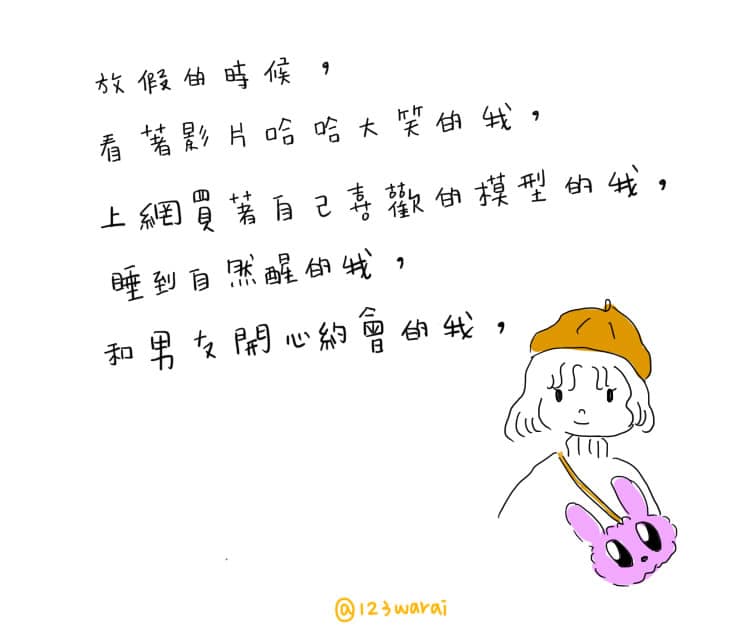 放假的時候，
看著影片哈哈大笑的我，
上網買著自己喜歡的模型的我，
睡到自然醒的我，
和男友開心約會的我，
@123warai